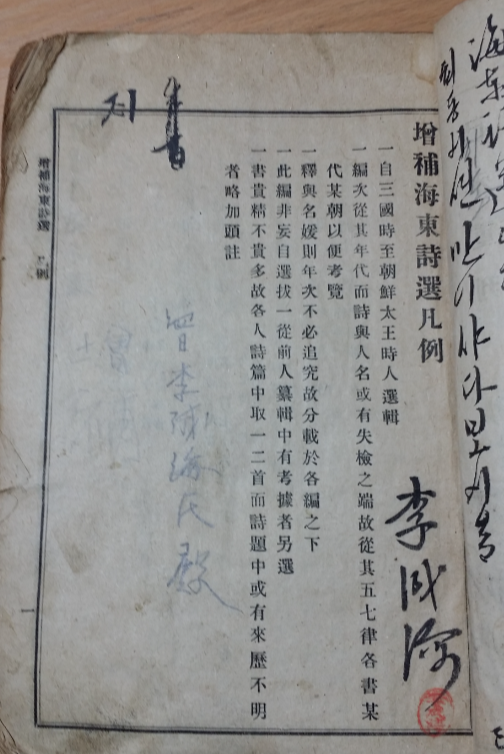 海東
增補海東詩選凡例
一自三國時至朝鮮太王時人選輯
一編次從其年代而詩與人名或有失檢之端故從其五七律各書某
代某朝以便考覽
一釋與名媛則年次不必追究故分載於各編之下
一此編非妄自選拔一從前人纂輯中有考據者另選
一書貴精不貴多故各人詩篇中取一二首而詩題中或有來歷不明
者略加頭註
李成
李 氏殿
增補海東詩選 凡例
一